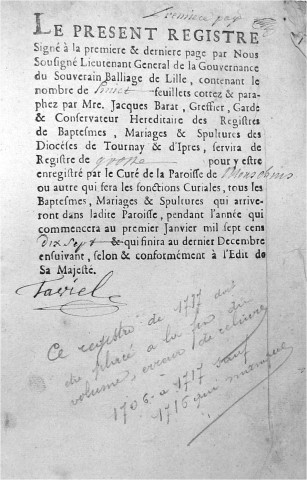 Premiere page
LE PRESENT REGISTRE
Signé à la premiere & derniere page par Nous
Sousigné Lieutenant General de la Gouvernance
du Souverain Balliage de Lille, contenant le
nombre de huict feuillets cottez & para-
phez par Mre. Jacques Barat, Greffier, Garde
& Conservateur Hereditaire des Registres
de Baptesmes, Mariages & Spultures des
Diocéses de Tournay & d'Ipres, servira de
Registre de grosse pour y estre
enregistré par le Curé de la Paroisse de
ou autre qui fera les fonctions Curiales, tous les
Baptesmes, Mariages & Spultures qui arrive-
ront dans ladite Paroisse, pendant l'année qui
commencera au premier Janvier mil sept cens
dix sept & qui finira au dernier Decembre
ensuivant, selon & conformément à l'Edit de
Sa Majesté.
Taviel
Ce registre de 1717 doit
être placé à la fin du
volume, erreur de relieure
1706 à 1717 sauf
1716 qui manque